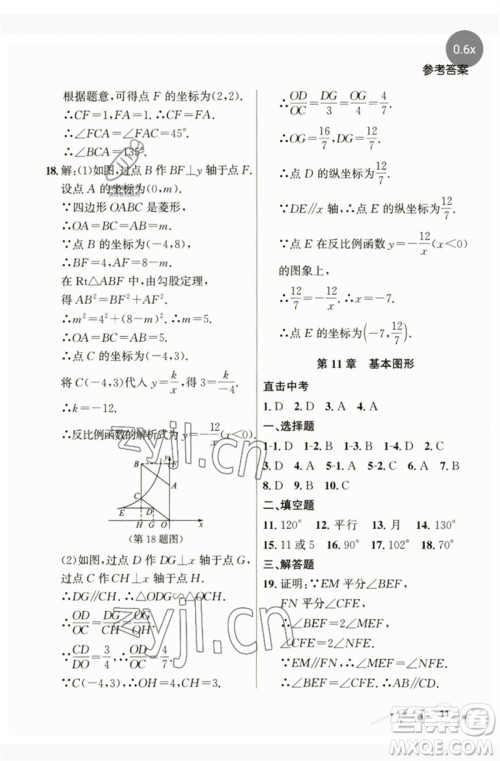 0.6x
参考答案
根据题意,可得点 F 的坐标为(2,2).
∴CF=1,FA=1.
∴∠FCA=∠FAC=45°.
∴∠BCA=135°.
18. 解:(1)如图,过点 B 作 BF⊥y 轴于点 F.
设点 A 的坐标为(0,m).
∵四边形 OABC 是菱形,
∴OA=AB=OC=BC=m.
∵点 B 的坐标为(-4,8),
∴BF=4,AF=8-m.
在 Rt△ABF 中,由勾股定理,
得 AB²=BF²+AF².
∴m²=4²+(8-m)².
∴m=5.∴OA=BC=5.
∴点 C 的坐标为(-4,3).
将 C(-4,3)代入 y=k/x,得 3=k/-4.
∴k=-12.
∴反比例函数的解析式为 y=-12/x(x<0).
(第 18 题图)
(2)如图,过点 D 作 DG⊥x 轴于点 G,过点 C 作 CH⊥x 轴于点 H.
∴DG∥CH.∴△ODG∽△OCH.
∴OD/OC=DG/CH=OG/OH.
∵CD/DO=3/4,∴OD/OC=4/7.
∵C(-4,3),∴OH=4,CH=3.
∴OD/OC=DG/3=OG/4=4/7.
∴OG=16/7,DG=12/7.
∴点 D 的纵坐标为12/7.
∵DE∥x 轴,∴点 E 的纵坐标为12/7.
∵点 E 在反比例函数 y=-12/x(x<0)
的图象上,
∴12/7=-12/x.∴x=-7.
∴点 E 的坐标为(-7,12/7).
第 11 章 基本图形
直击中考
1. D 2. D 3. A 4. A
一、选择题
1-1. D 1-2. D 2-1. B 2-2. D
3-1. D 3-2. A 4. A 5. B 6. D 7. B
8. D 9. D 10. C
二、填空题
11. 120° 12. 平行 13. 110° 14. 130°
15. 11或 5 16. 30° 17. 70° 18. 77°
三、解答题
19. 证明:∵EM 平分∠BEF,
FN 平分∠CFE,
∴∠BEF=2∠MEF,
∠CFE=2∠NFE.
∵∠MEF=∠NFE,
∴∠BEF=∠CFE.
∴AB∥CD.
zyjl.cn
zyjl.cn